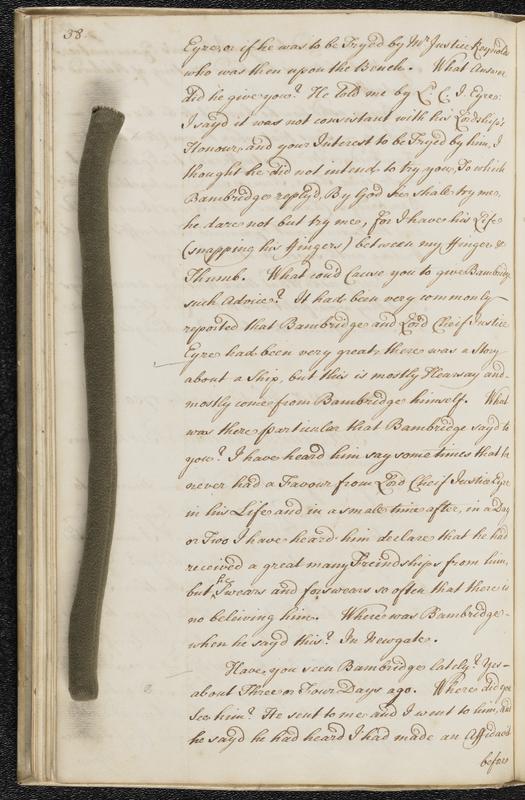 38
Eyre, or if he was to be Tryed by Mr. Justice Reynolds
who was then upon the Bench. What Answer
did he give you? He told me by L. C. J. Eyre.
I sayd it was not consistant with his Lordship's
Honour, and your Interest to be Tryed by him, I
thought he did not intend to try you, To which
Bambridge reply'd, By God he shall try me,
he dare not but try me, for I have his Life
(snapping his ffingers) between my ffinger &
Thumb. What coud Cause you to give Bambridge
such Advice? It had been very commonly
reported that Bambridge and Lord Cheif Justice
Eyre had been very great, there was a Story
about a Ship, but this is mostly Hearsay and
mostly come from Bambridge himself. What
was there particular that Bambridge sayd to
you? I have heard him say sometimes that he
never had a Favour from Lord Cheif Justice Eyre
in his Life and in a small time after, in a Day
or Two I have heard him declare that he had
received a great many Freindships from him,
but he Swears and forswears so often that there is
no beleiving him. Where was Bambridge
when he sayd this? In Newgate.
Have you seen Bambridge lately? Yes
about Three or Four Days ago. Where did you
See him? He sent to me and I went to him, and
he sayd he had heard I had made an Affidavit
before